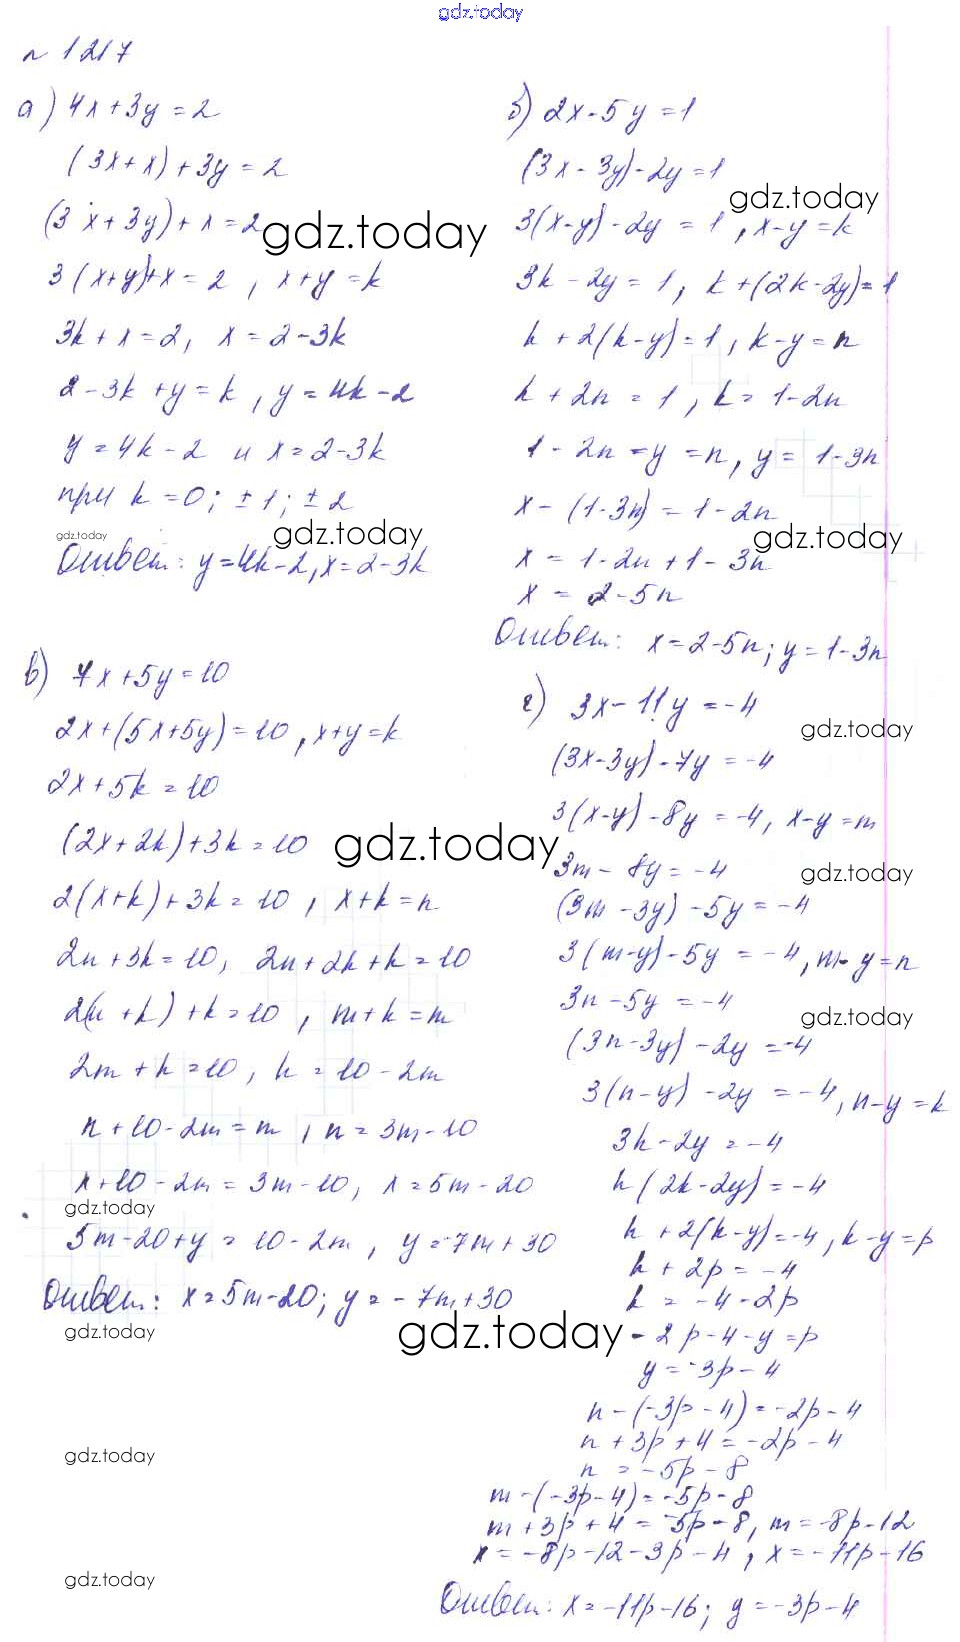 gdz.today
№ 1217
а) 4x+3y=2
(3x+x)+3y=2
(3x+3y)+x=2
gdz.today
3(x+y)+x=2, x+y=k
3k+x=2, x=2-3k
2-3k+y=k, y=4k-2
y=4k-2 и x=2-3k
при k=0; ±1; ±2
gdz.today
gdz.today
Ответ: y=4k-2, x=2-3k
б) 2x-5y=1
(3x-3y)-2y=1
gdz.today
3(x-y)-2y=1, x-y=k
3k-2y=1, k+(2k-2y)=1
k+2(k-y)=1, k-y=n
k+2n=1, k=1-2n
1-2n-y=n, y=1-3n
x-(1-3n)=1-2n
gdz.today
x=1-2n+1-3n
x=2-5n
Ответ: x=2-5n; y=1-3n
в) 7x+5y=10
2x+(5x+5y)=10, x+y=k
2x+5k=10
(2x+2k)+3k=10
gdz.today
2(x+k)+3k=10, x+k=n
2n+3k=10, 2n+2k+k=10
2(n+k)+k=10, m+k=m
2m+k=10, k=10-2m
n+10-2m=m, n=3m-10
x+10-2m=3m-10, x=5m-20
gdz.today
5m-20+y=10-2m, y=-7m+30
Ответ: x=5m-20; y=-7m+30
gdz.today
gdz.today
gdz.today
gdz.today
г) 3x-11y=-4
gdz.today
(3x-3y)-7y=-4
3(x-y)-8y=-4, x-y=m
3m-8y=-4
gdz.today
(3m-3y)-5y=-4
3(m-y)-5y=-4, m-y=n
3n-5y=-4
gdz.today
(3n-3y)-2y=-4
3(n-y)-2y=-4, n-y=k
3k-2y=-4
k(2k-2y)=-4
k+2(k-y)=-4, k-y=p
k+2p=-4
k=-4-2p
-2p-4-y=p
y=-3p-4
n-(-3p-4)=-2p-4
n+3p+4=-2p-4
n=-5p-8
m-(-3p-4)=-5p-8
m+3p+4=-5p-8, m=-8p-12
x=-8p-12-3p-4, x=-11p-16
Ответ: x=-11p-16; y=-3p-4